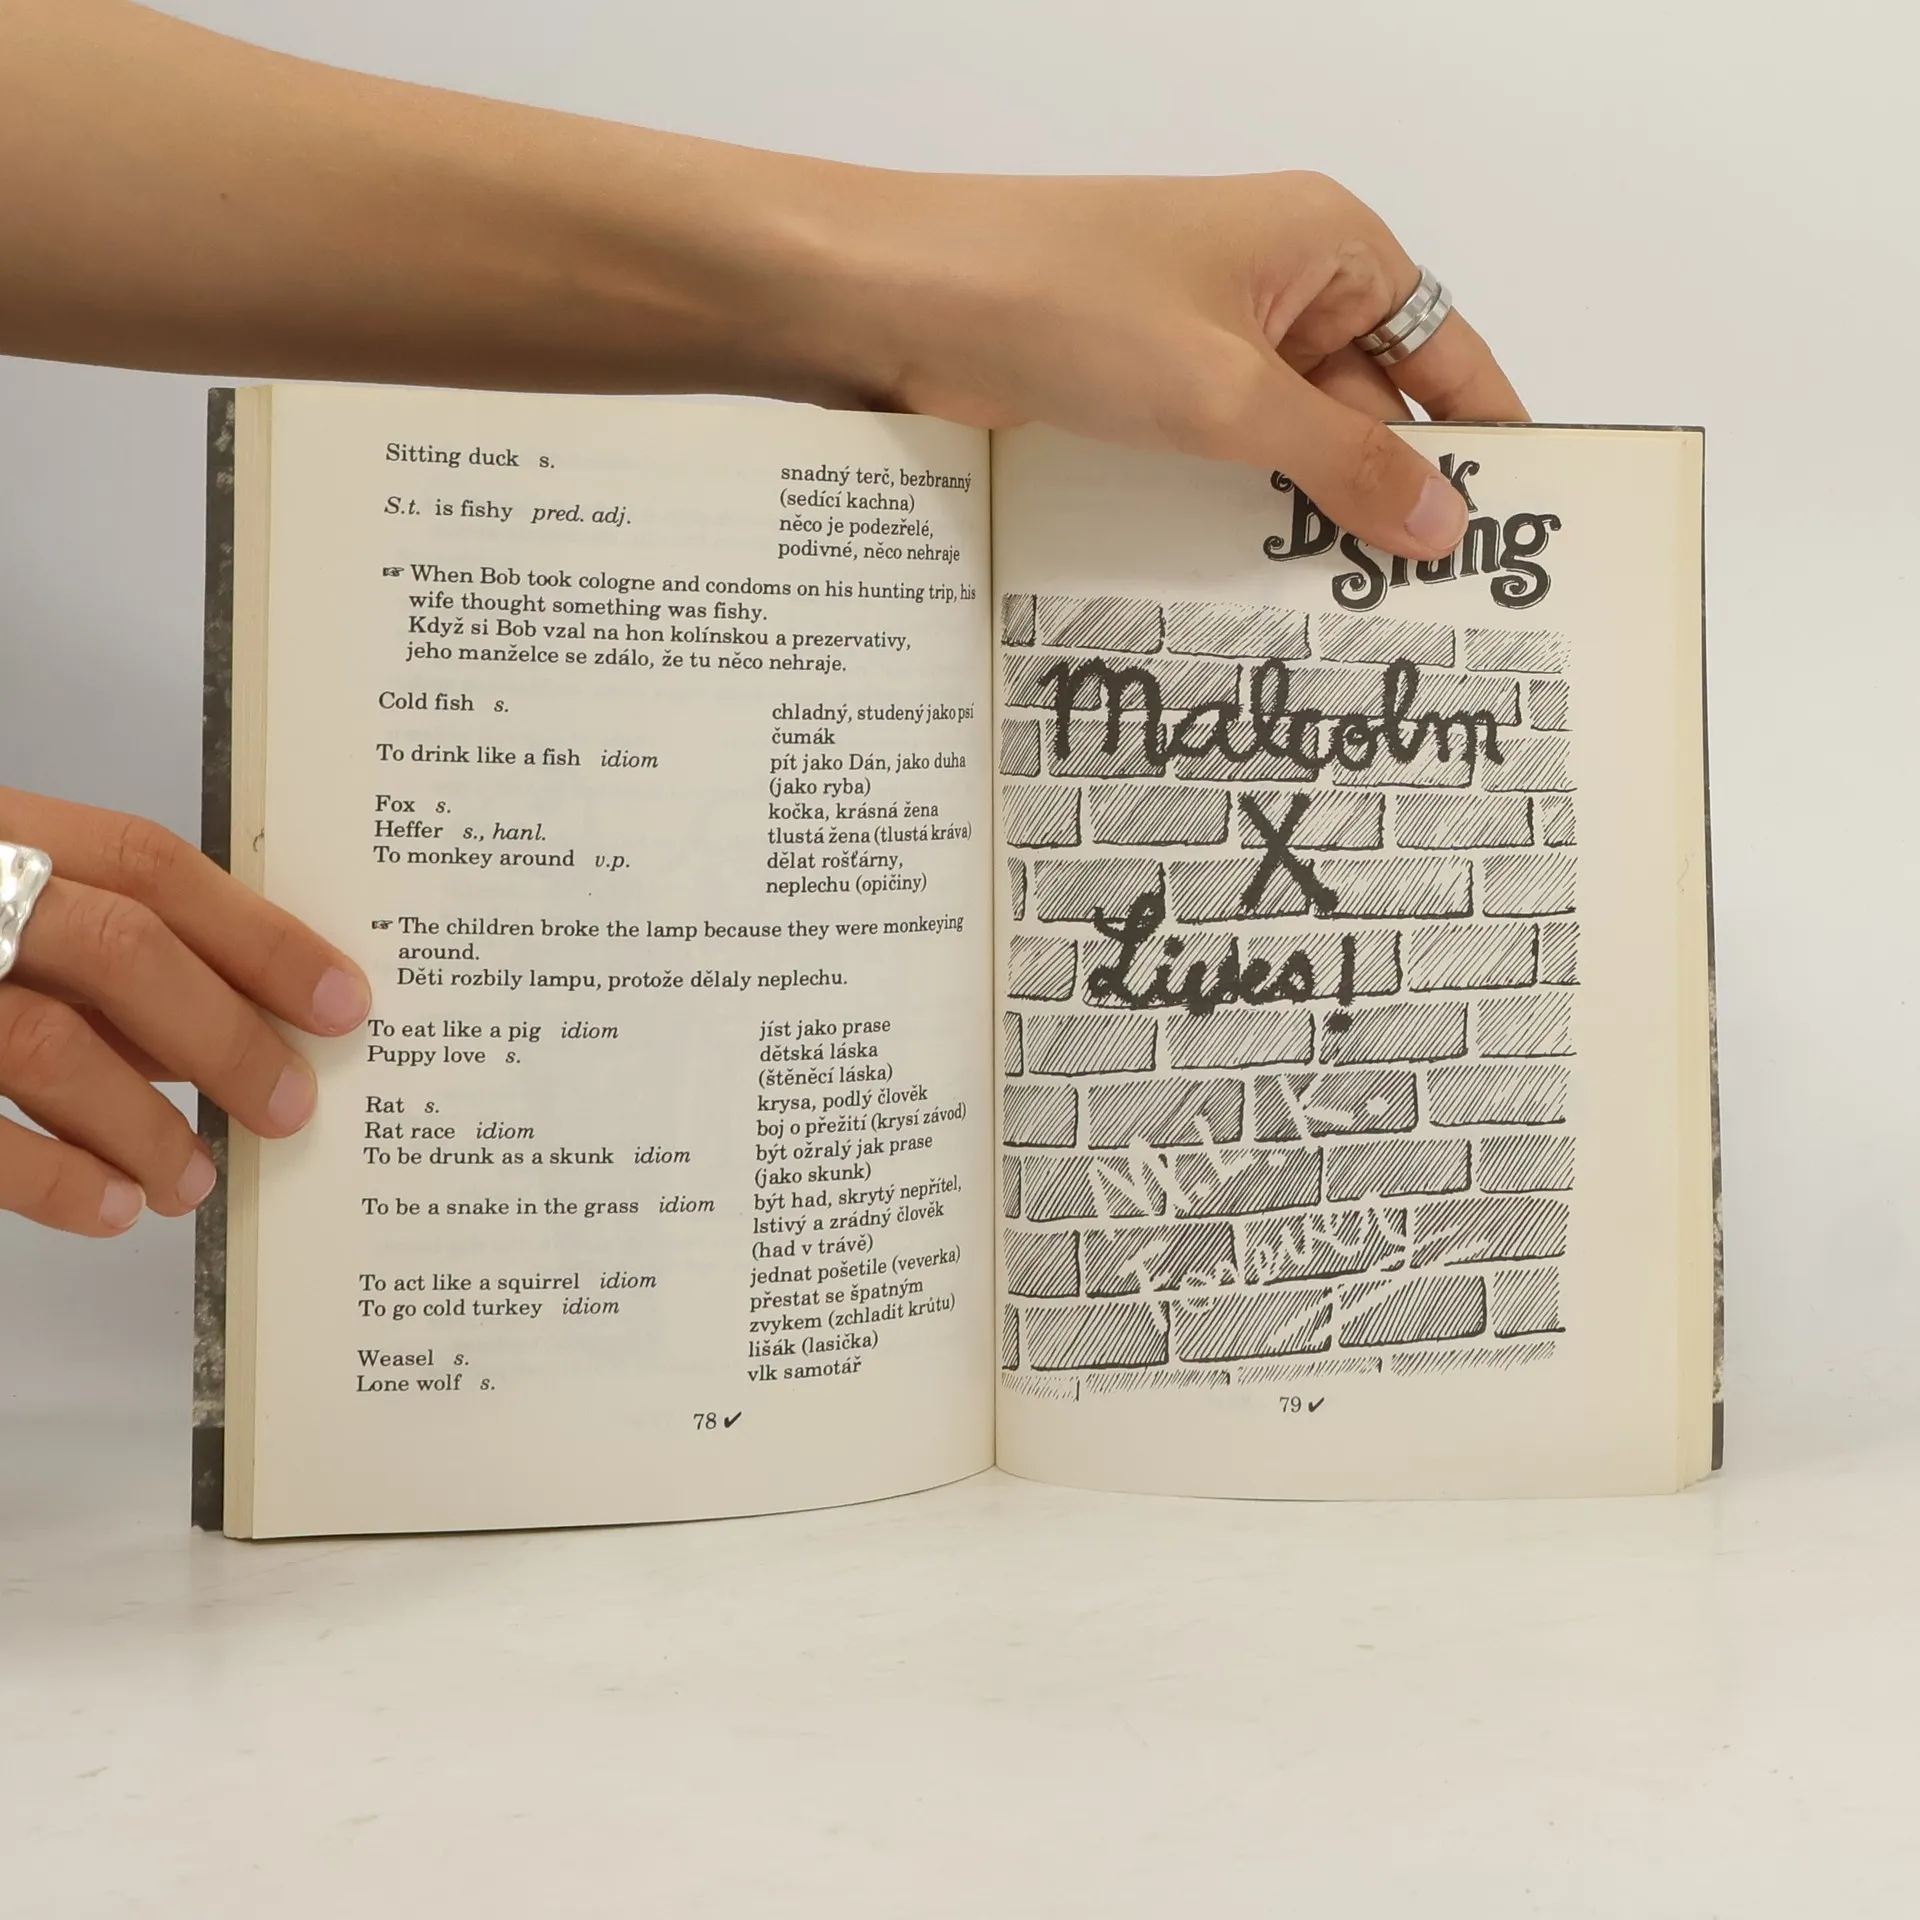 Sitting duck s.
snadný terč, bezbranný
(sedící kachna)
S.t. is fishy pred. adj.
něco je podezřelé,
podivné, něco nehraje
☞ When Bob took cologne and condoms on his hunting trip, his
wife thought something was fishy.
Když si Bob vzal na hon kolínskou a prezervativy,
jeho manželce se zdálo, že tu něco nehraje.
Cold fish s.
chladný, studený jako psí
čumák
To drink like a fish idiom
pít jako Dán, jako duha
(jako ryba)
Fox s.
kočka, krásná žena
Heffer s., hanl.
tlustá žena (tlustá kráva)
To monkey around v.p.
dělat rošťárny,
neplechu (opičiny)
☞ The children broke the lamp because they were monkeying
around.
Děti rozbily lampu, protože dělaly neplechu.
To eat like a pig idiom
jíst jako prase
Puppy love s.
dětská láska
(štěněcí láska)
Rat s.
krysa, podlý člověk
Rat race idiom
boj o přežití (krysí závod)
To be drunk as a skunk idiom
být ožralý jak prase
(jako skunk)
To be a snake in the grass idiom
být had, skrytý nepřítel,
lstivý a zrádný člověk
(had v trávě)
To act like a squirrel idiom
jednat pošetile (veverka)
To go cold turkey idiom
přestat se špatným
zvykem (zchladit krůtu)
Weasel s.
lišák (lasička)
Lone wolf s.
vlk samotář
78 ✓
Slang
Malcolm
X
Lives!
79 ✓